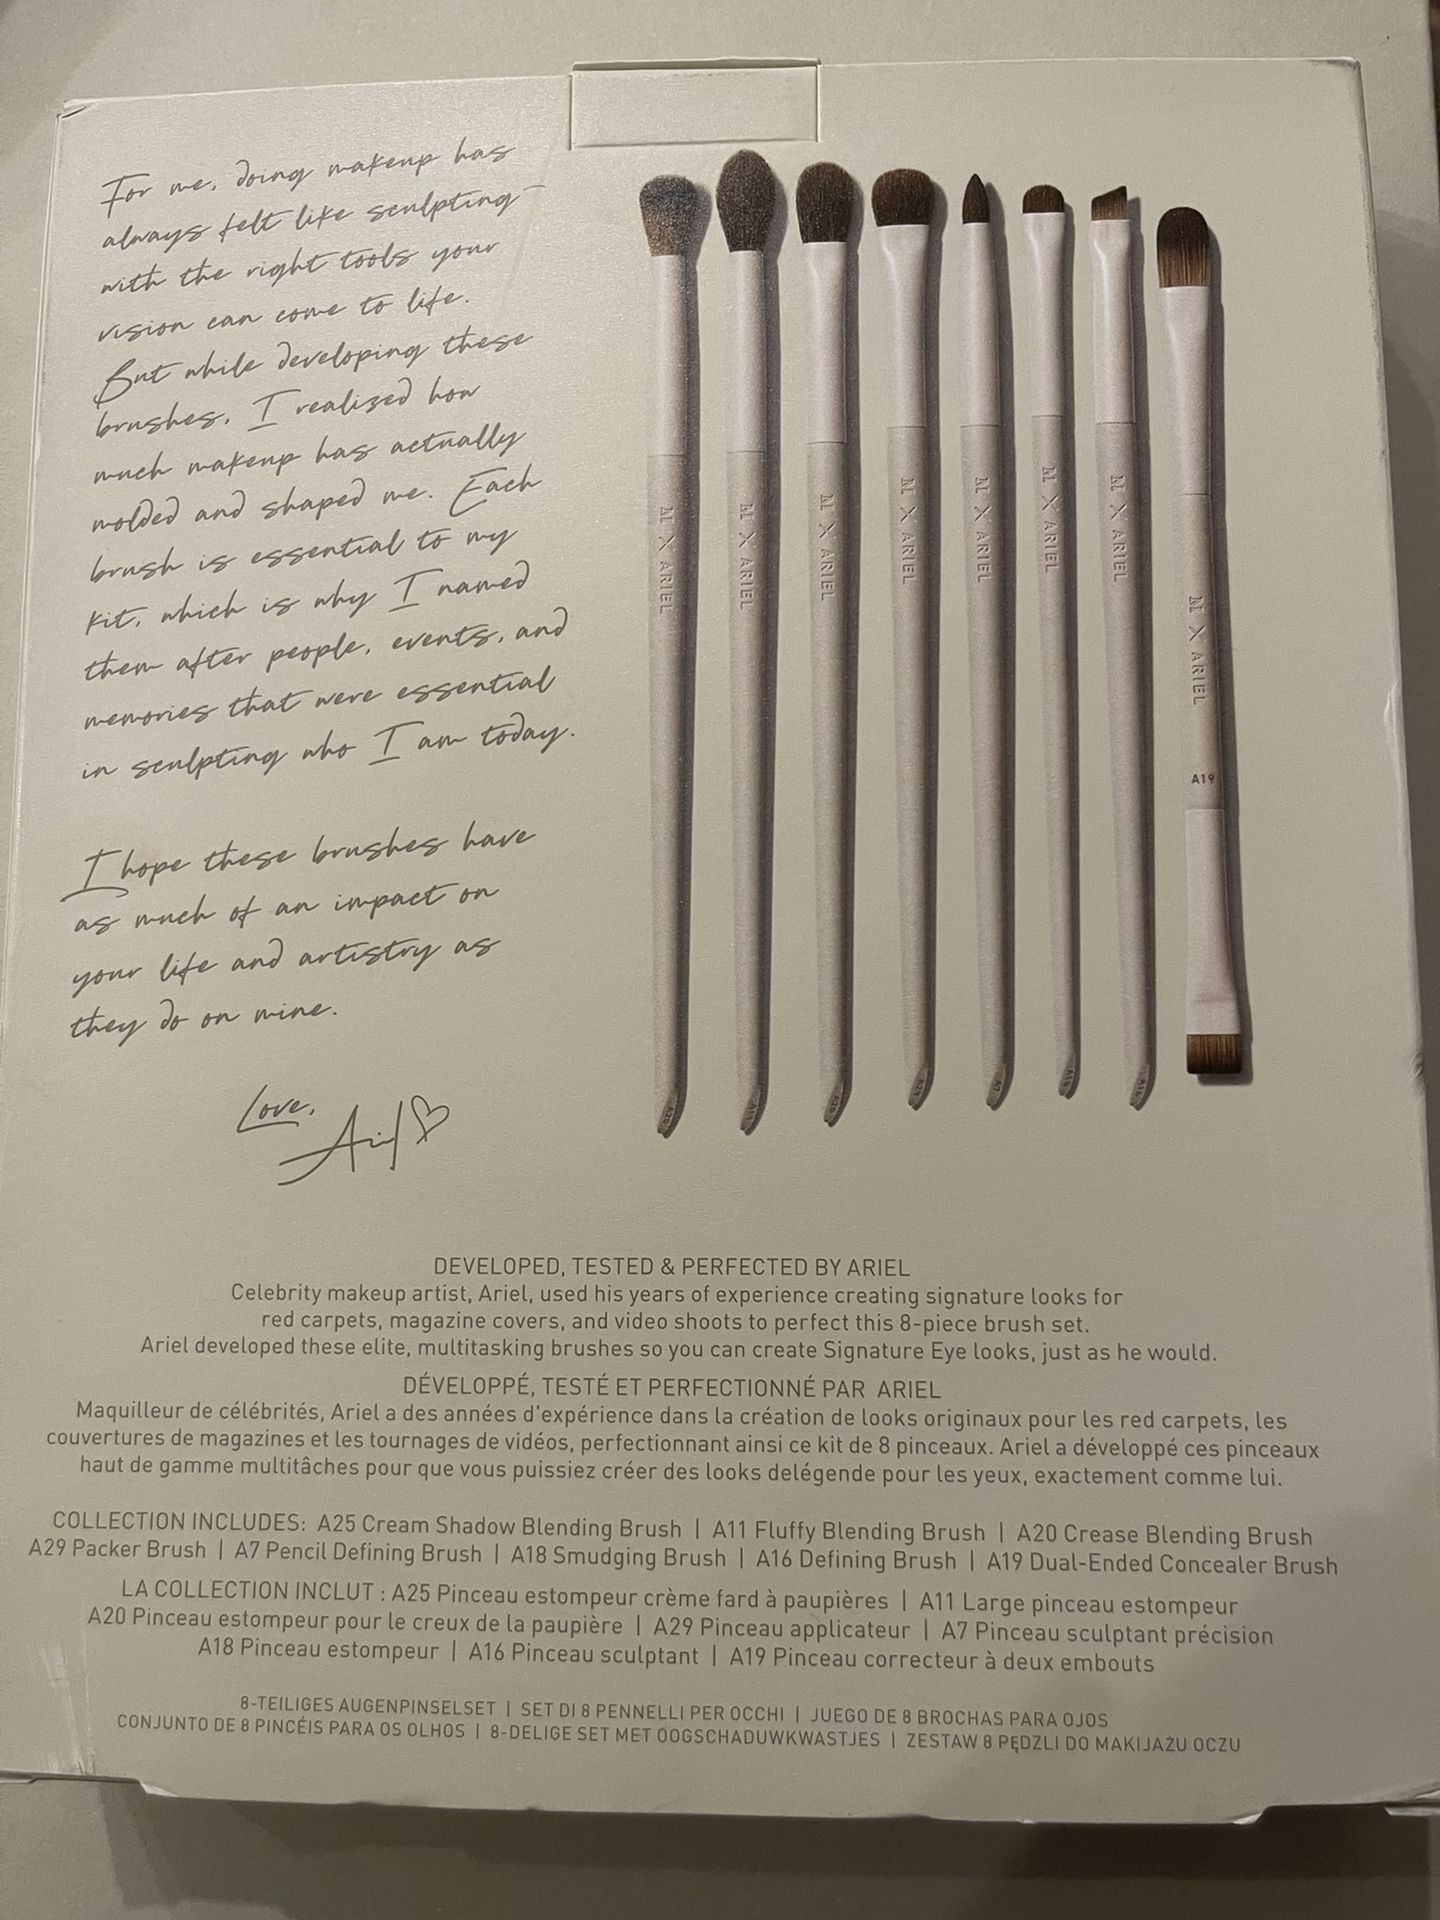 For me, doing makeup has
always felt like sculpting–
with the right tools your
vision can come to life.
But while developing these
brushes, I realized how
much makeup has actually
molded and shaped me. Each
brush is essential to my
kit, which is why I named
them after people, events, and
memories that were essential
in sculpting who I am today.
I hope these brushes have
as much of an impact on
your life and artistry as
they do on mine.
Love,
Ariel
M X ARIEL
M X ARIEL
M X ARIEL
M X ARIEL
M X ARIEL
M X ARIEL
M X ARIEL
M X ARIEL
A19
A25
A11
A20
A29
A7
A18
A16
DEVELOPED, TESTED & PERFECTED BY ARIEL
Celebrity makeup artist, Ariel, used his years of experience creating signature looks for
red carpets, magazine covers, and video shoots to perfect this 8-piece brush set.
Ariel developed these elite, multitasking brushes so you can create Signature Eye looks, just as he would.
DÉVELOPPÉ, TESTÉ ET PERFECTIONNÉ PAR ARIEL
Maquilleur de célébrités, Ariel a des années d'expérience dans la création de looks originaux pour les red carpets, les
couvertures de magazines et les tournages de vidéos, perfectionnant ainsi ce kit de 8 pinceaux. Ariel a développé ces pinceaux
haut de gamme multitâches pour que vous puissiez créer des looks delégende pour les yeux, exactement comme lui.
COLLECTION INCLUDES: A25 Cream Shadow Blending Brush | A11 Fluffy Blending Brush | A20 Crease Blending Brush
A29 Packer Brush | A7 Pencil Defining Brush | A18 Smudging Brush | A16 Defining Brush | A19 Dual-Ended Concealer Brush
LA COLLECTION INCLUT : A25 Pinceau estompeur crème fard à paupières | A11 Large pinceau estompeur
A20 Pinceau estompeur pour le creux de la paupière | A29 Pinceau applicateur | A7 Pinceau sculptant précision
A18 Pinceau estompeur | A16 Pinceau sculptant | A19 Pinceau correcteur à deux embouts
8-TEILIGES AUGENPINSELSET | SET DI 8 PENNELLI PER OCCHI | JUEGO DE 8 BROCHAS PARA OJOS
CONJUNTO DE 8 PINCÉIS PARA OS OLHOS | 8-DELIGE SET MET OOGSCHADUWKWASTJES | ZESTAW 8 PĘDZLI DO MAKIJAŻU OCZU